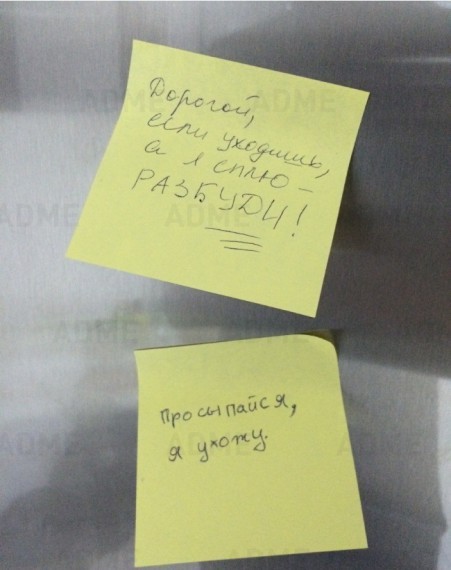 Дорогой,
если уходишь,
а я сплю –
РАЗБУДИ!
Просыпайся,
я ухожу.
ADME
ADME
ADME
ADME